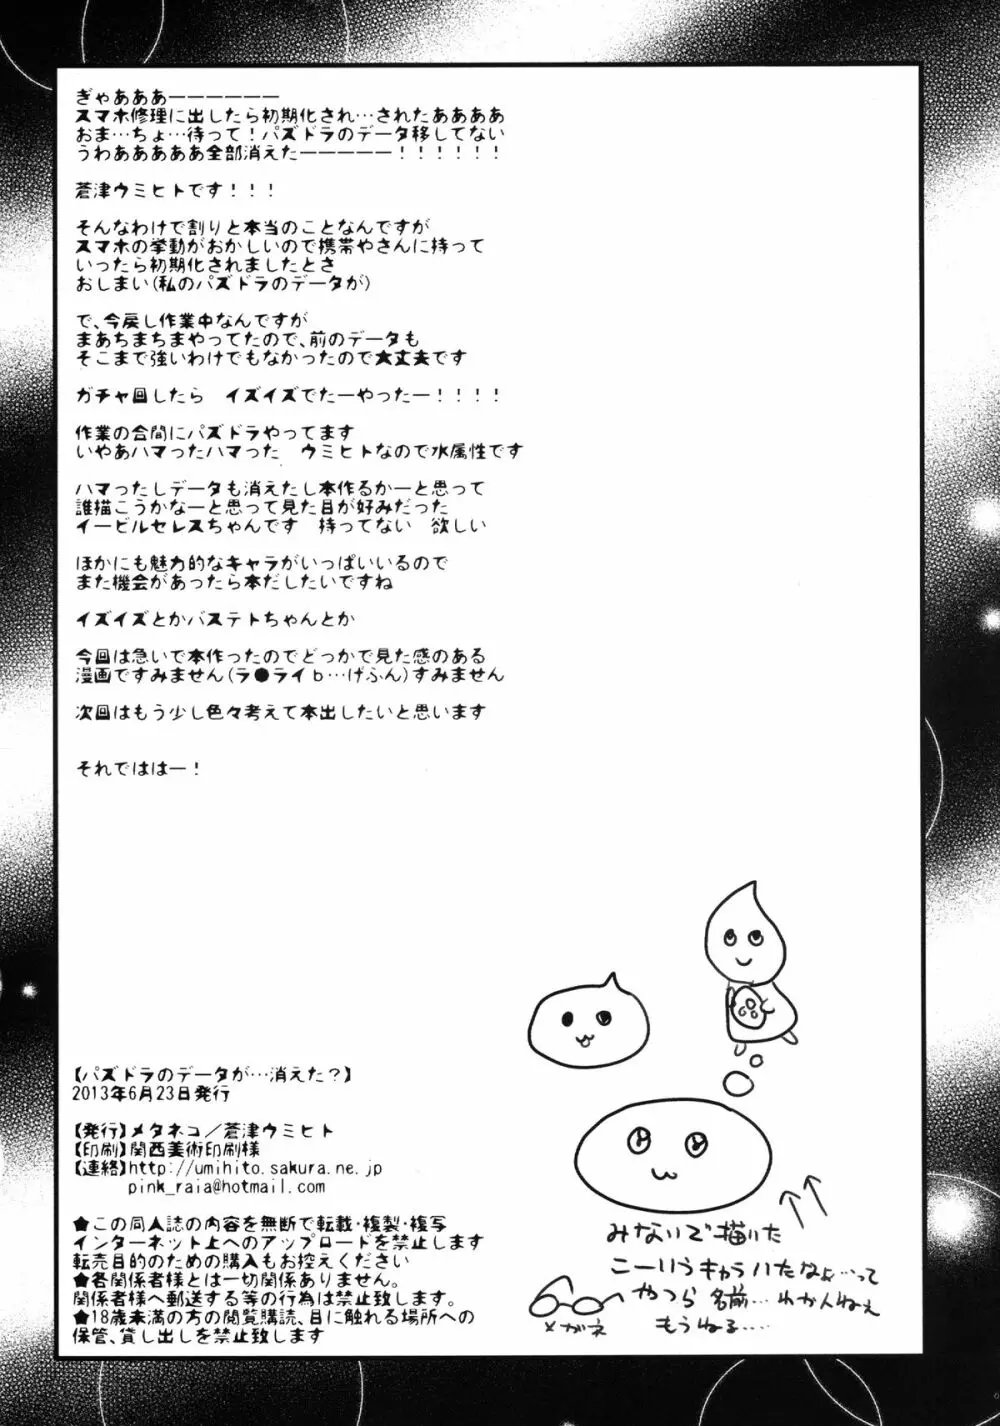 ぎゃあああーーーーーー
スマホ修理に出したら初期化され…されたああああ
おま…ちょ…待って！パズドラのデータ移してない
うわあああああ全部消えたーーーーー！！！！！！
蒼津ウミヒトです！！！
そんなわけで割りと本当のことなんですが
スマホの挙動がおかしいので携帯やさんに持って
いったら初期化されましたとさ
おしまい(私のパズドラのデータが)
で、今戻し作業中なんですが
まあちまちまやってたので、前のデータも
そこまで強いわけでもなかったので大丈夫です
ガチャ回したら　イズイズでたーやったー！！！！
作業の合間にパズドラやってます
いやあハマったハマった　ウミヒトなので水属性です
ハマったしデータも消えたし本作るかーと思って
誰描こうかなーと思って見た目が好みだった
イービルセレスちゃんです　持ってない　欲しい
ほかにも魅力的なキャラがいっぱいいるので
また機会があったら本だしたいですね
イズイズとかバステトちゃんとか
今回は急いで本作ったのでどっかで見た感のある
漫画ですみません(ラ●ライb…げふん)すみません
次回はもう少し色々考えて本出したいと思います
それではは－！
【パズドラのデータが…消えた？】
2013年6月23日発行
【発行】メタネコ／蒼津ウミヒト
【印刷】関西美術印刷様
【連絡】http://umihito.sakura.ne.jp
pink_raia@hotmail.com
★この同人誌の内容を無断で転載・複製・複写
インターネット上へのアップロードを禁止します
転売目的のための購入もお控えください
★各関係者様とは一切関係ありません。
関係者様へ郵送する等の行為は禁止致します。
★18歳未満の方の閲覧購読、目に触れる場所への
保管、貸し出しを禁止致します
みないで描いた
こーいうキャラいたなょ…って
やつら 名前… わかんねぇ
もうねる….
メガネ